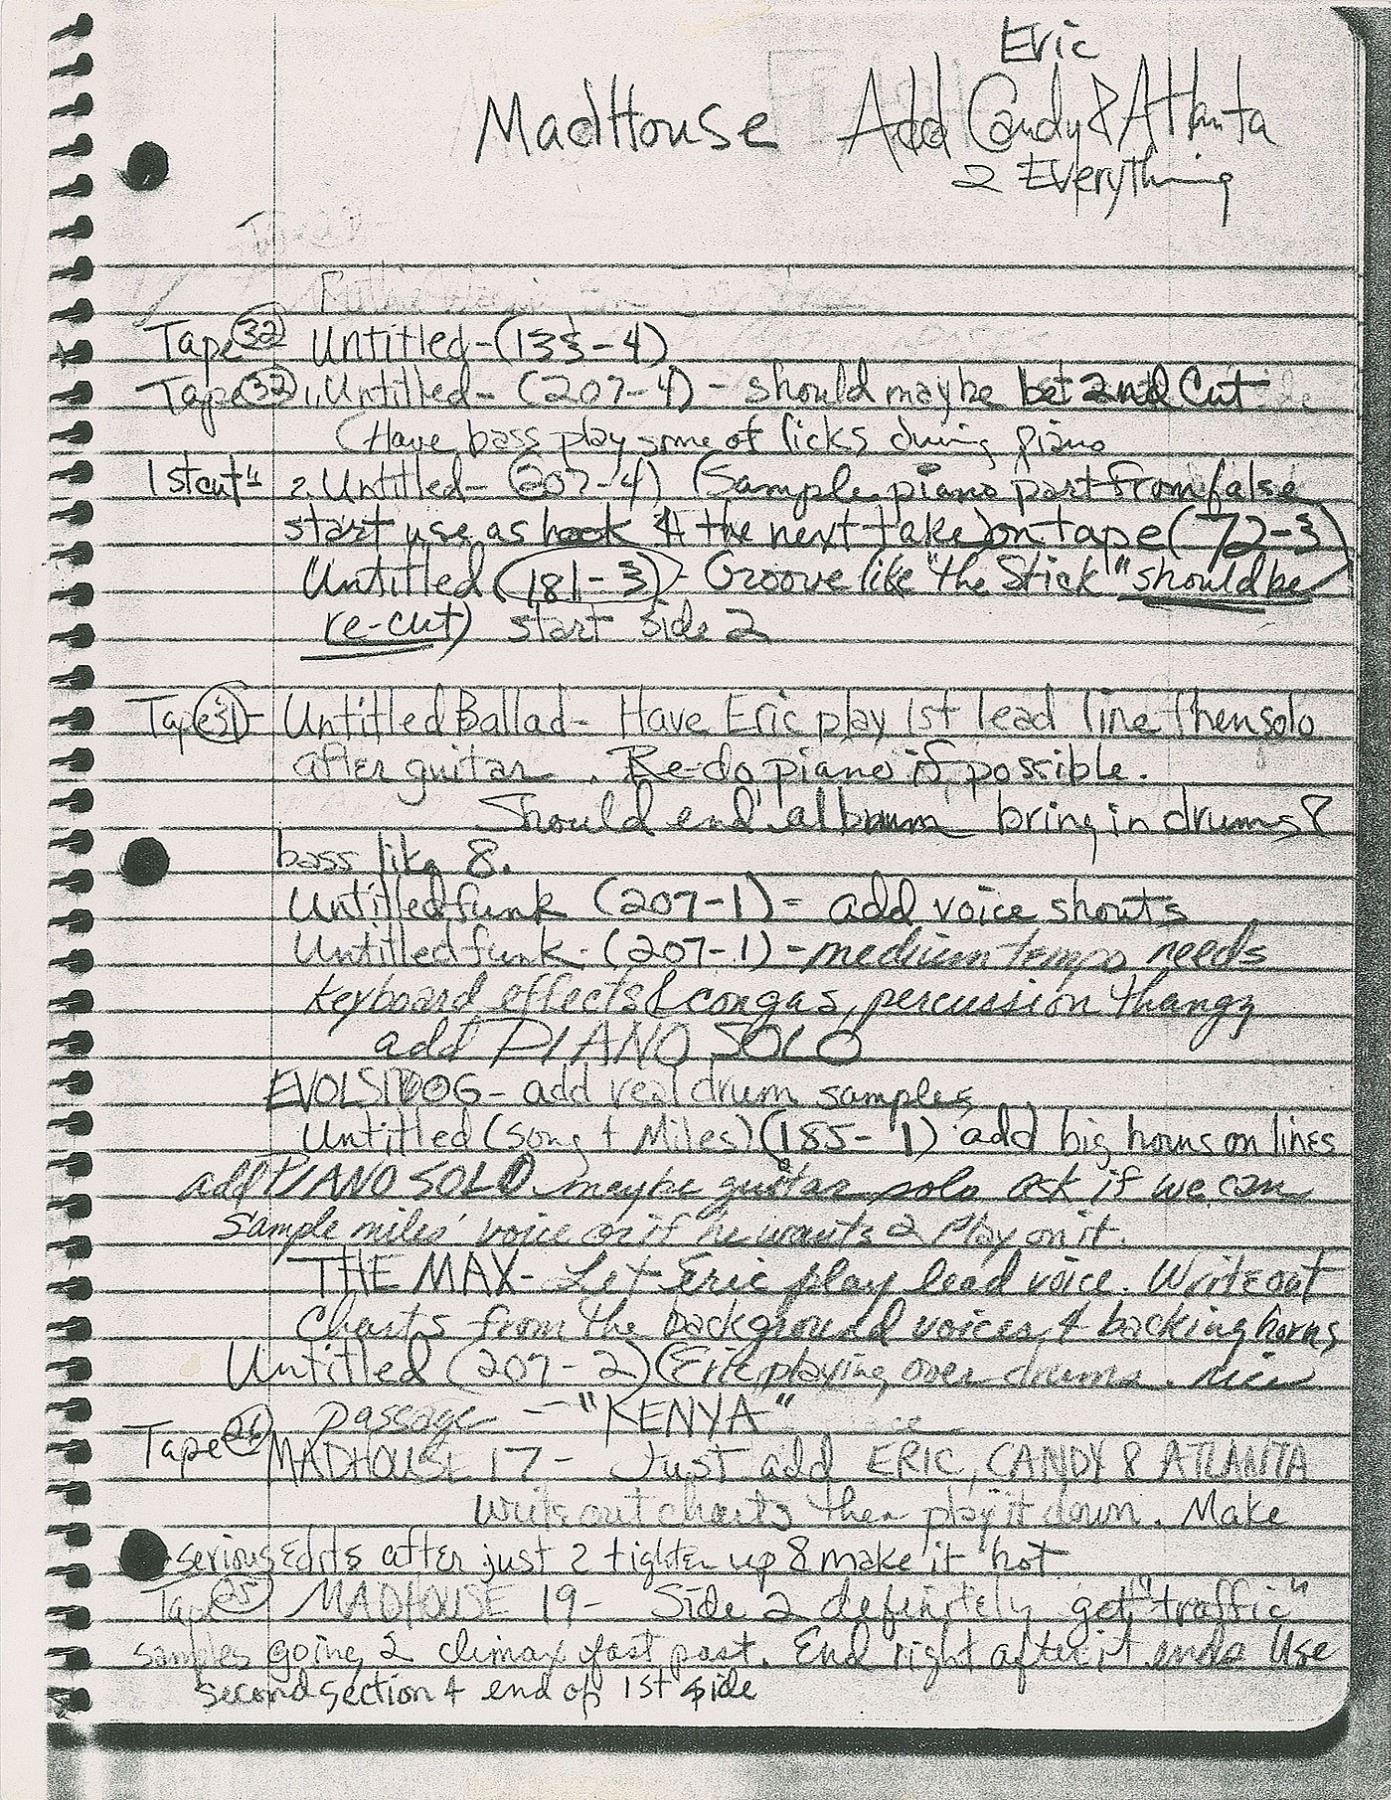 Eric
MadHouse Add Candy & Atlanta
2 Everything
Tape 32 Untitled-(133-4)
Tape 32 1. Untitled- (207-4) - should maybe be 2nd Cut
(Have bass play some of licks during piano
1st cut" 2. Untitled- (207-4) (Sample piano part from false
start use as hook 4 the next take) on tape (72-3)
Untitled (181-3) - Groove like "the Stick" should be
re-cut) start side 2
Tape 31- Untitled Ballad- Have Eric play 1st lead line then solo
after guitar. Re-do piano if possible.
Should end album bring in drums &
bass like 8.
Untitled funk (207-1) - add voice shouts
Untitled funk - (207-1) - medium tempo needs
Keyboard effects & congas, percussion thangz
add PIANO SOLO
EVOLSIDOG - add real drum samples
Untitled (song 4 Miles) (185-1) add big horns on lines
add PIANO SOLO maybe guitar solo ask if we can
sample miles' voice or if he wants 2 Play on it.
THE MAX- Let Eric play lead voice. Write out
Charts from the background voices 4 backing horns
Untitled (207-2) (Eric playing over drums. nice
passage - "KENYA"
Tape 26 MADHOUSE 17 - Just add ERIC, CANDY & ATLANTA
Write out charts then play it down. Make
serious edits after just 2 tighten up & make it hot
Tape 25 MADHOUSE 19- Side 2 definitely get "traffic"
samples going 2 climax fast part. End right after it ends Use
second section 4 end of 1st side